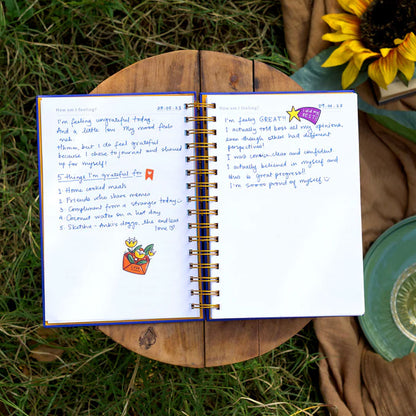 How am I feeling?
09.05.23
I'm feeling ungrateful today.
And a little low. My mood feels
meh.
Hmm, but I do feel grateful
because I chose to journal and showed
up for myself!
5 things I'm grateful for
1. Home cooked meals
2. Friends who share memes
3. Compliment from a stranger today
4. Coconut water on a hot day
5. Sketchu - Anki's doggo, the endless
love
How am I feeling?
I'm feeling GREAT!!
I actually told boss all my opinions,
even though others had different
perspectives!
I was concise, clear and confident
I actually believed in myself and
this is great progress!!
I'm soooo proud of myself